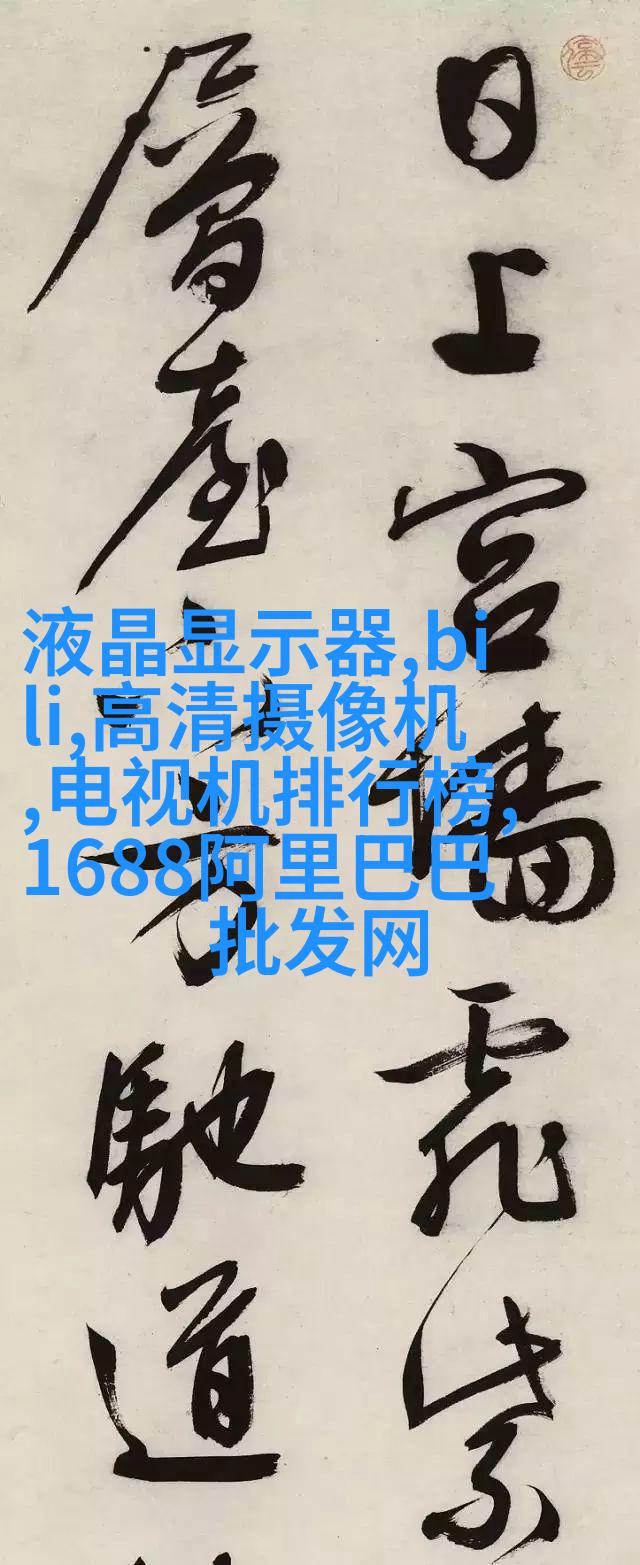 日上宮牆霏紫
層臺
馳道
液晶显示器,bi
li,高清摄像机
,电视机排行榜,
1688阿里巴巴
批发网